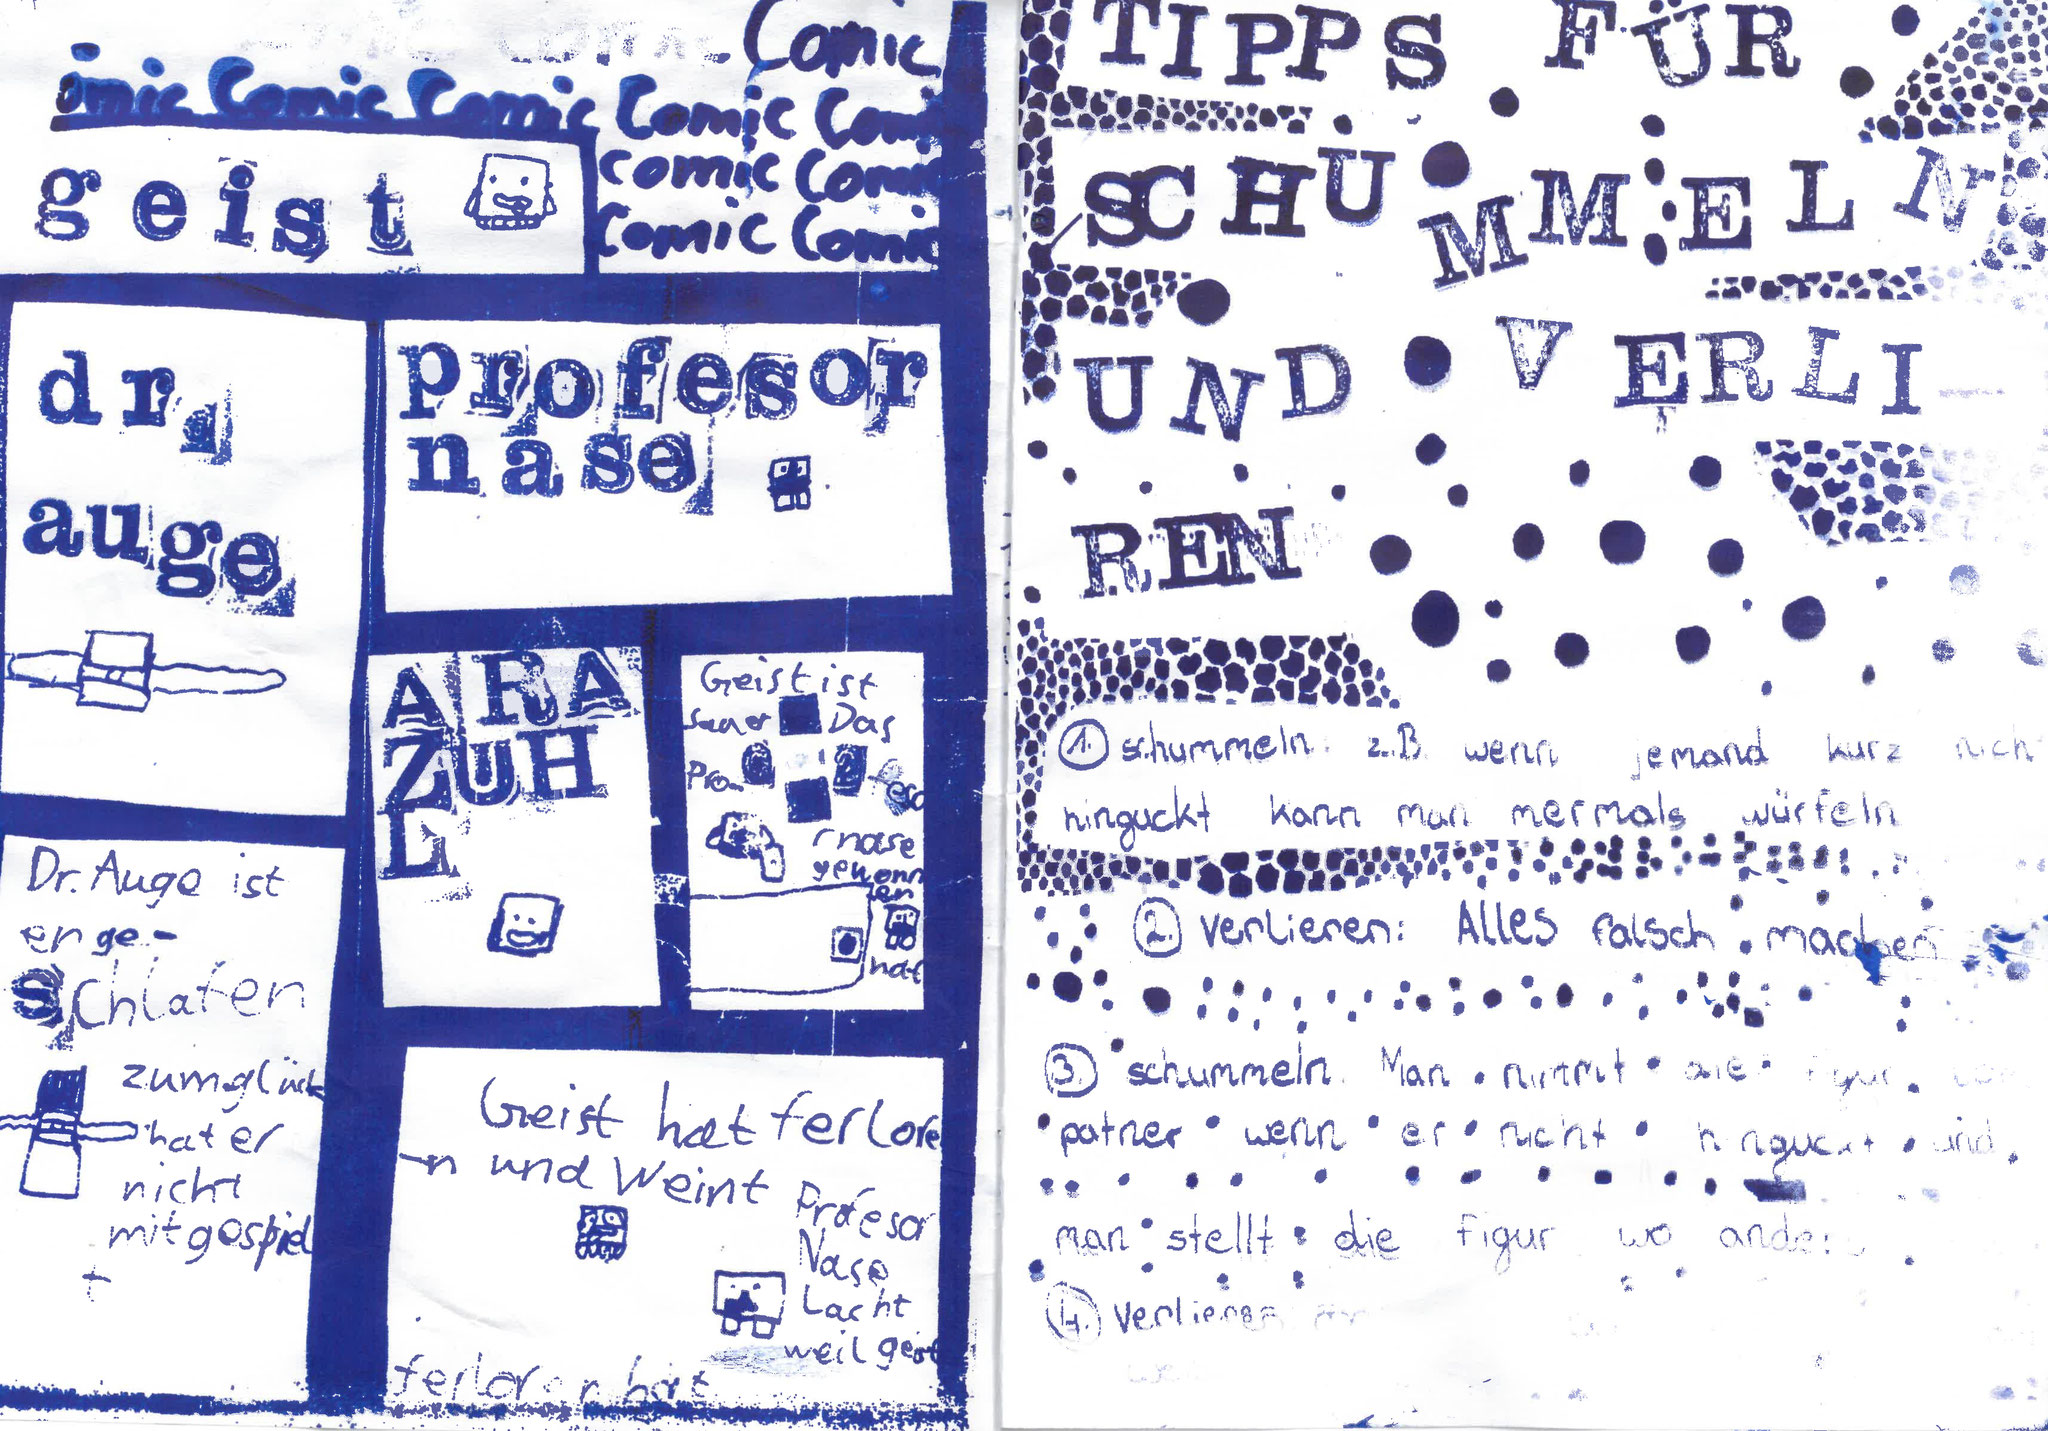 Comic
omic Comic Comic Comic Comic Comi
comic Comic
Comic Comic
geist
dr.
auge
profesor
nase
ARA
ZUH
L
Geist ist
sauer Das
Pro feso
r nase
gewonn
en
hat
Dr. Auge ist
enge-
schlafen
zumglück
hat er
nicht
mitgespiel
t
Geist hat ferlore
-n und Weint
Profesor
Nase
Lacht
weil geist
ferloren hat
TIPPS FÜR
SCHUMMELN
UND VERLI
REN
1. schummeln: z.B. wenn jemand kurz nich
hinguckt kann man mermals würfeln
2. verlieren: ALLES falsch machen
3. schummeln. Man nimmt die figur
patner wenn er nicht hinguckt und
man stellt die figur wo anders
4. verlieren